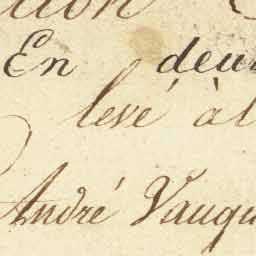 tion
En deux
levé à l
André Vauqu